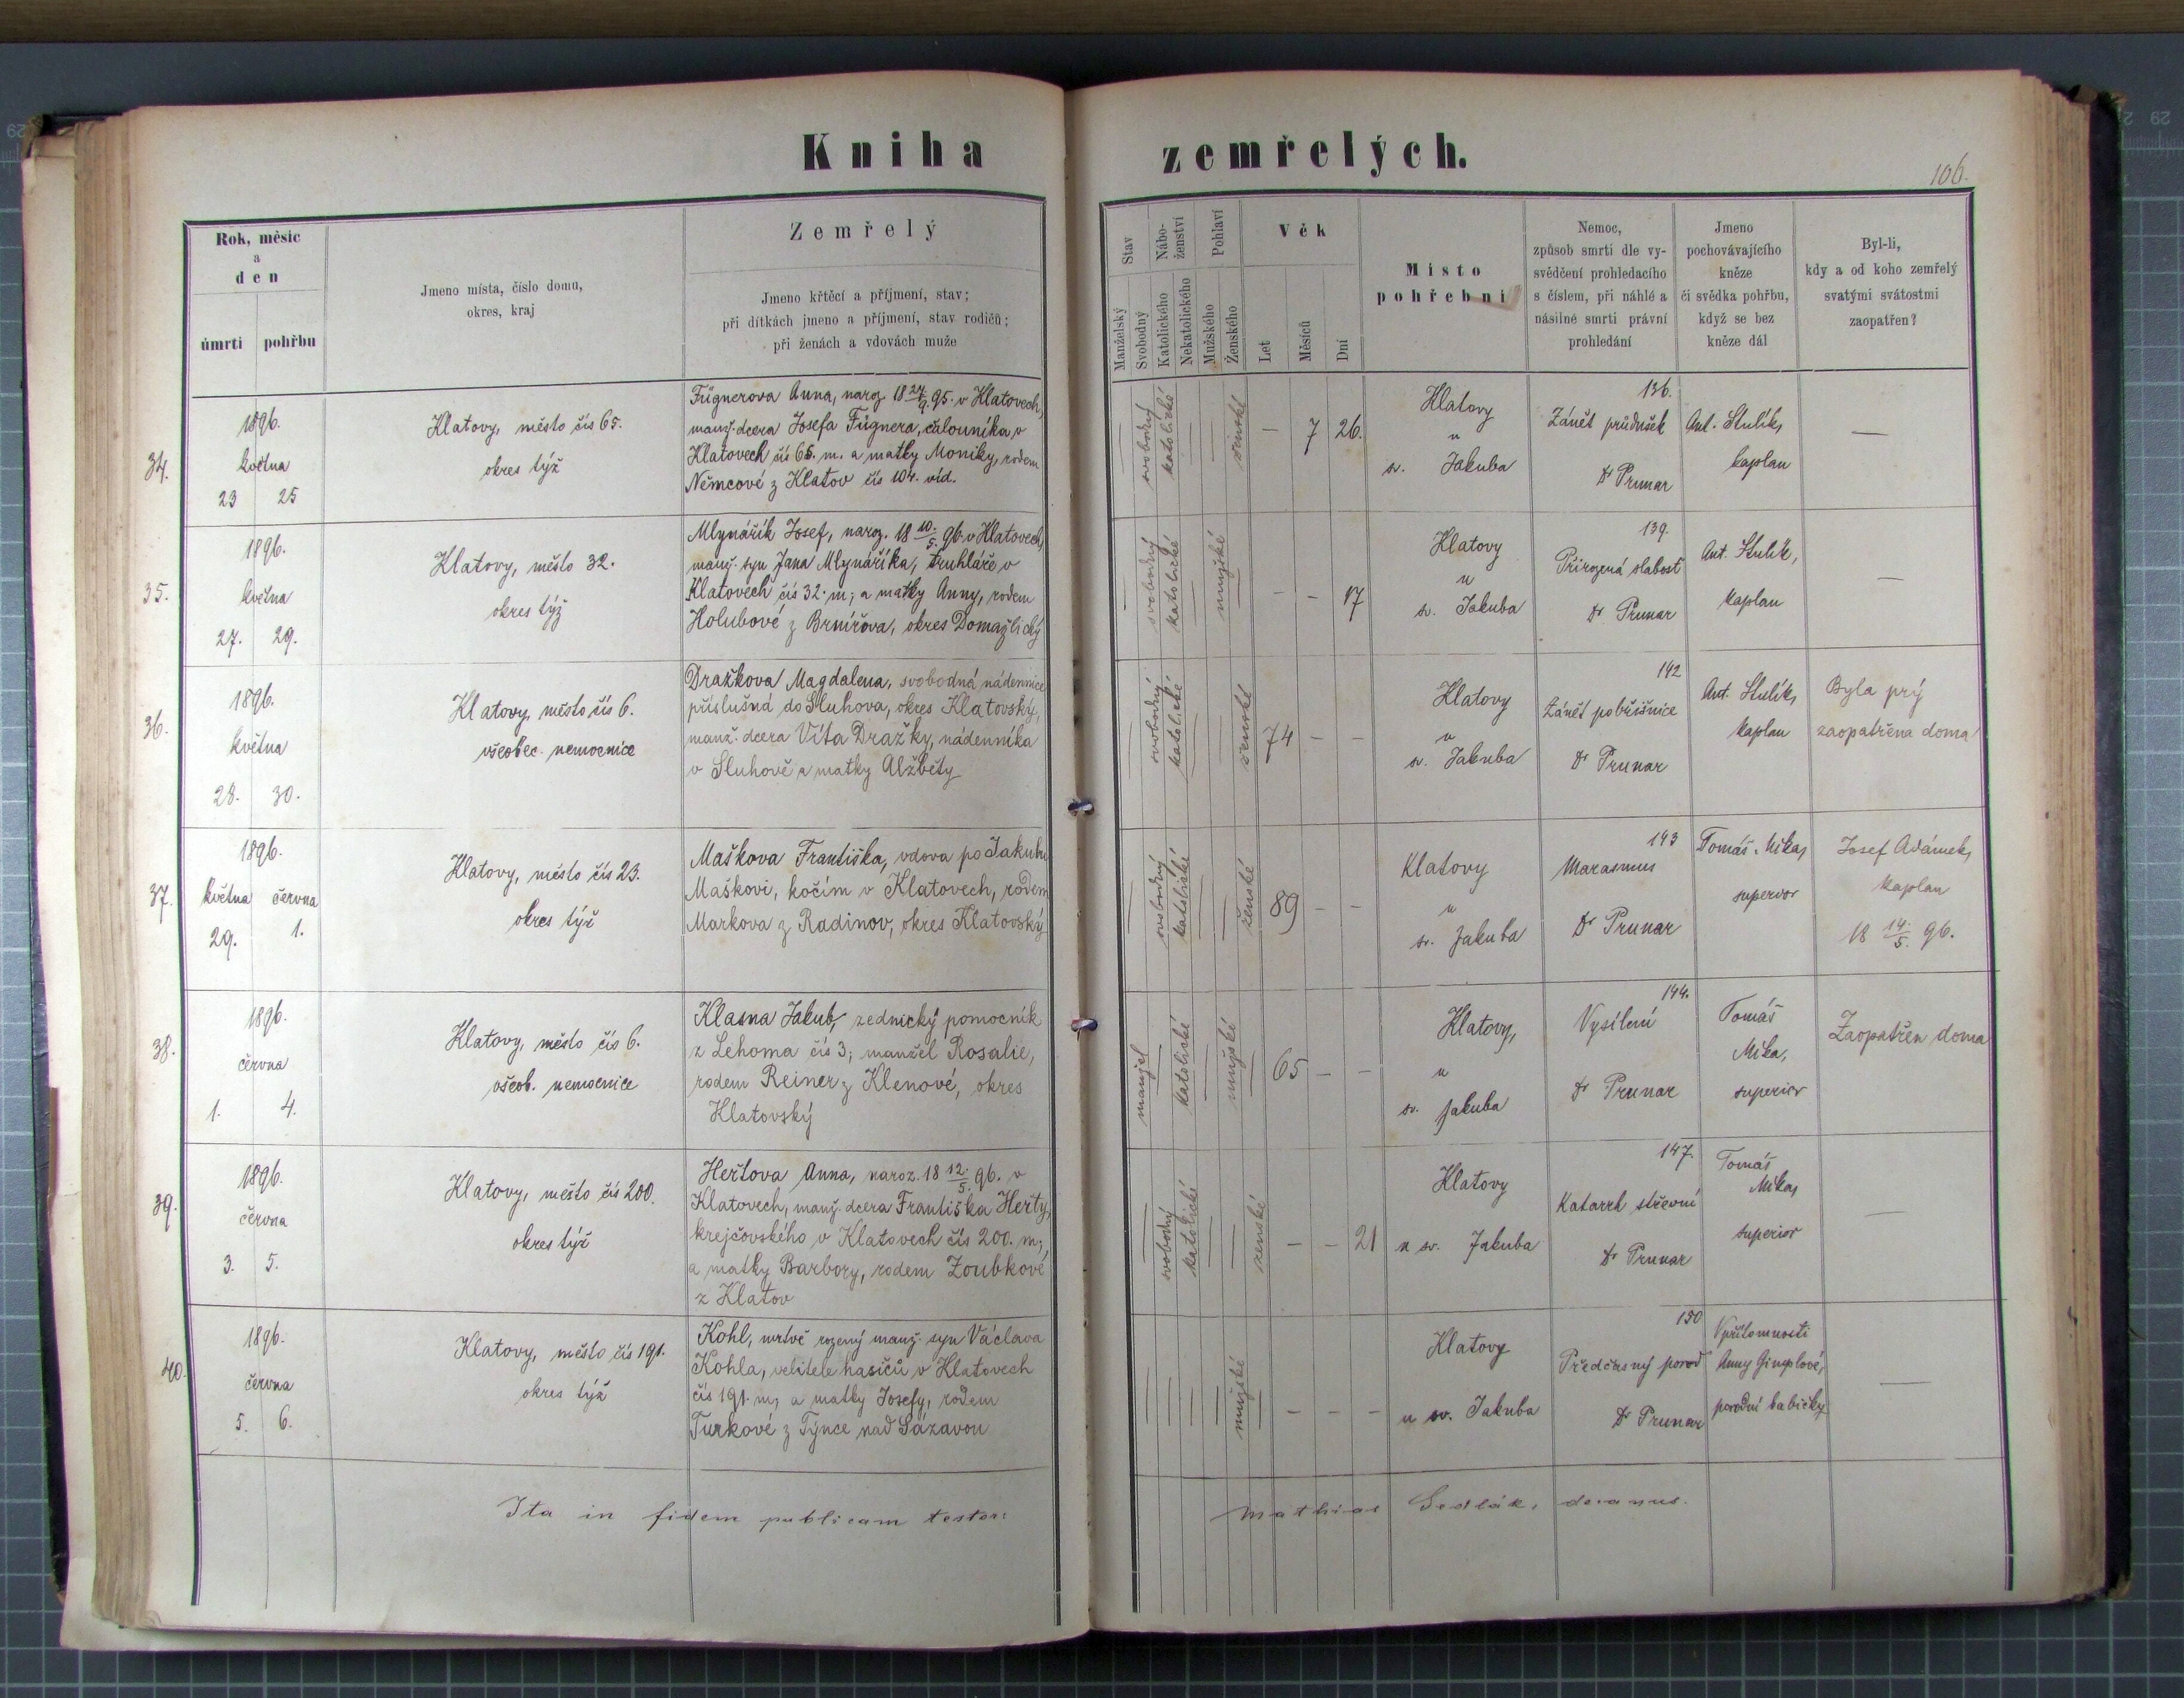 Kniha zemřelých.
106.
Rok, měsíc
a
den
úmrtí
pohřbu
Jmeno místa, číslo domu,
okres, kraj
Zemřelý
Jmeno křtěcí a příjmení, stav;
při dítkách jmeno a příjmení, stav rodičů;
při ženách a vdovách muže
Stav
Manželský
Svobodný
Nábo-
ženství
Katolického
Nekatolického
Pohlaví
Mužského
Ženského
Věk
Let
Měsíců
Dní
Místo
pohřební
Nemoc,
způsob smrti dle vy-
svědčení prohledacího
s číslem, při náhlé a
násilné smrti právní
prohledání
Jmeno
pochovávajícího
kněze
či svědka pohřbu,
když se bez
kněze dál
Byl-li,
kdy a od koho zemřelý
svatými svátostmi
zaopatřen?
34.
1896.
května
23 25
Klatovy, město čís 65.
okres týž
Fügnerova Anna, naroz. 18 24/9. 95. v Klatovech,
manž. dcera Josefa Fügnera, čalouníka v
Klatovech čís 65. m. a matky Moniky, rodem
Němcové z Klatov čís 104. víd.
svobodný
katolické
ženské
— 7 26.
Klatovy
u
sv. Jakuba
136.
Zánět průdušek
Dr Prunar
Ant. Stulík,
kaplan
—
35.
1896.
května
27. 29.
Klatovy, město 32.
okres týž
Mlynářík Josef, naroz. 18 10./5. 96. v Klatovech,
manž. syn Jana Mlynáříka, truhláře v
Klatovech čís 32. m; a matky Anny, rodem
Holubové z Brnířova, okres Domažlický
svobodný
katolické
mužské
- - 17
Klatovy
u
sv. Jakuba
139.
Přirozená slabost
Dr Prunar
Ant. Stulík,
kaplan
—
36.
1896.
května
28. 30.
Klatovy, město čís 6.
všeobec. nemocnice
Dražkova Magdalena, svobodná nádennice
příslušná do Sluhova, okres Klatovský,
manž. dcera Víta Dražky, nádenníka
v Sluhově a matky Alžběty
svobodný
katolické
ženské
74 - -
Klatovy
u
sv. Jakuba
142
Zánět pobřišnice
Dr Prunar
Ant. Stulík,
kaplan
Byla prý
zaopatřena doma
37.
1896.
května června
29. 1.
Klatovy, město čís 23.
okres týž
Maškova Františka, vdova po Jakubu
Maškovi, kočím v Klatovech, rodem
Markova z Radinov, okres Klatovský
svobodný
katolické
ženské
89 - -
Klatovy
u
sv. Jakuba
143
Marasmus
Dr Prunar
Tomáš Mika,
supervor
Josef Adámek,
kaplan
18 14./5. 96.
38.
1896.
června
1. 4.
Klatovy, město čís 6.
všeob. nemocnice
Klasna Jakub, zednický pomocník
z Lehoma čís 3; manžel Rosalie,
rodem Reiner z Klenové, okres
Klatovský
manžel
katolické
mužské
65 - -
Klatovy,
u
sv. Jakuba
144.
Vysílení
Dr Prunar
Tomáš
Mika,
superior
Zaopatřen doma
39.
1896.
června
3. 5.
Klatovy, město čís 200.
okres týž
Heřtova Anna, naroz. 18 12./5. 96. v
Klatovech, manž. dcera Františka Heřty,
krejčovského v Klatovech čís 200. m;
a matky Barbory, rodem Zoubkové
z Klatov
svobodný
katolické
ženské
- - 21
Klatovy
u sv. Jakuba
147.
Katarrh střevní
Dr Prunar
Tomáš
Mika,
superior
—
40.
1896.
června
5. 6.
Klatovy, město čís 191.
okres týž
Kohl, mrtvě rozený manž. syn Václava
Kohla, velitele hasičů v Klatovech
čís 191. m, a matky Josefy, rodem
Turkové z Týnce nad Sázavou
mužské
- - -
Klatovy
u sv. Jakuba
150
Předčasný porod
Dr Prunar
V přítomnosti
Anny Gimplové,
porodní babičky
—
Ita in fidem publicam testor: Mathias Sedlák, decanus.